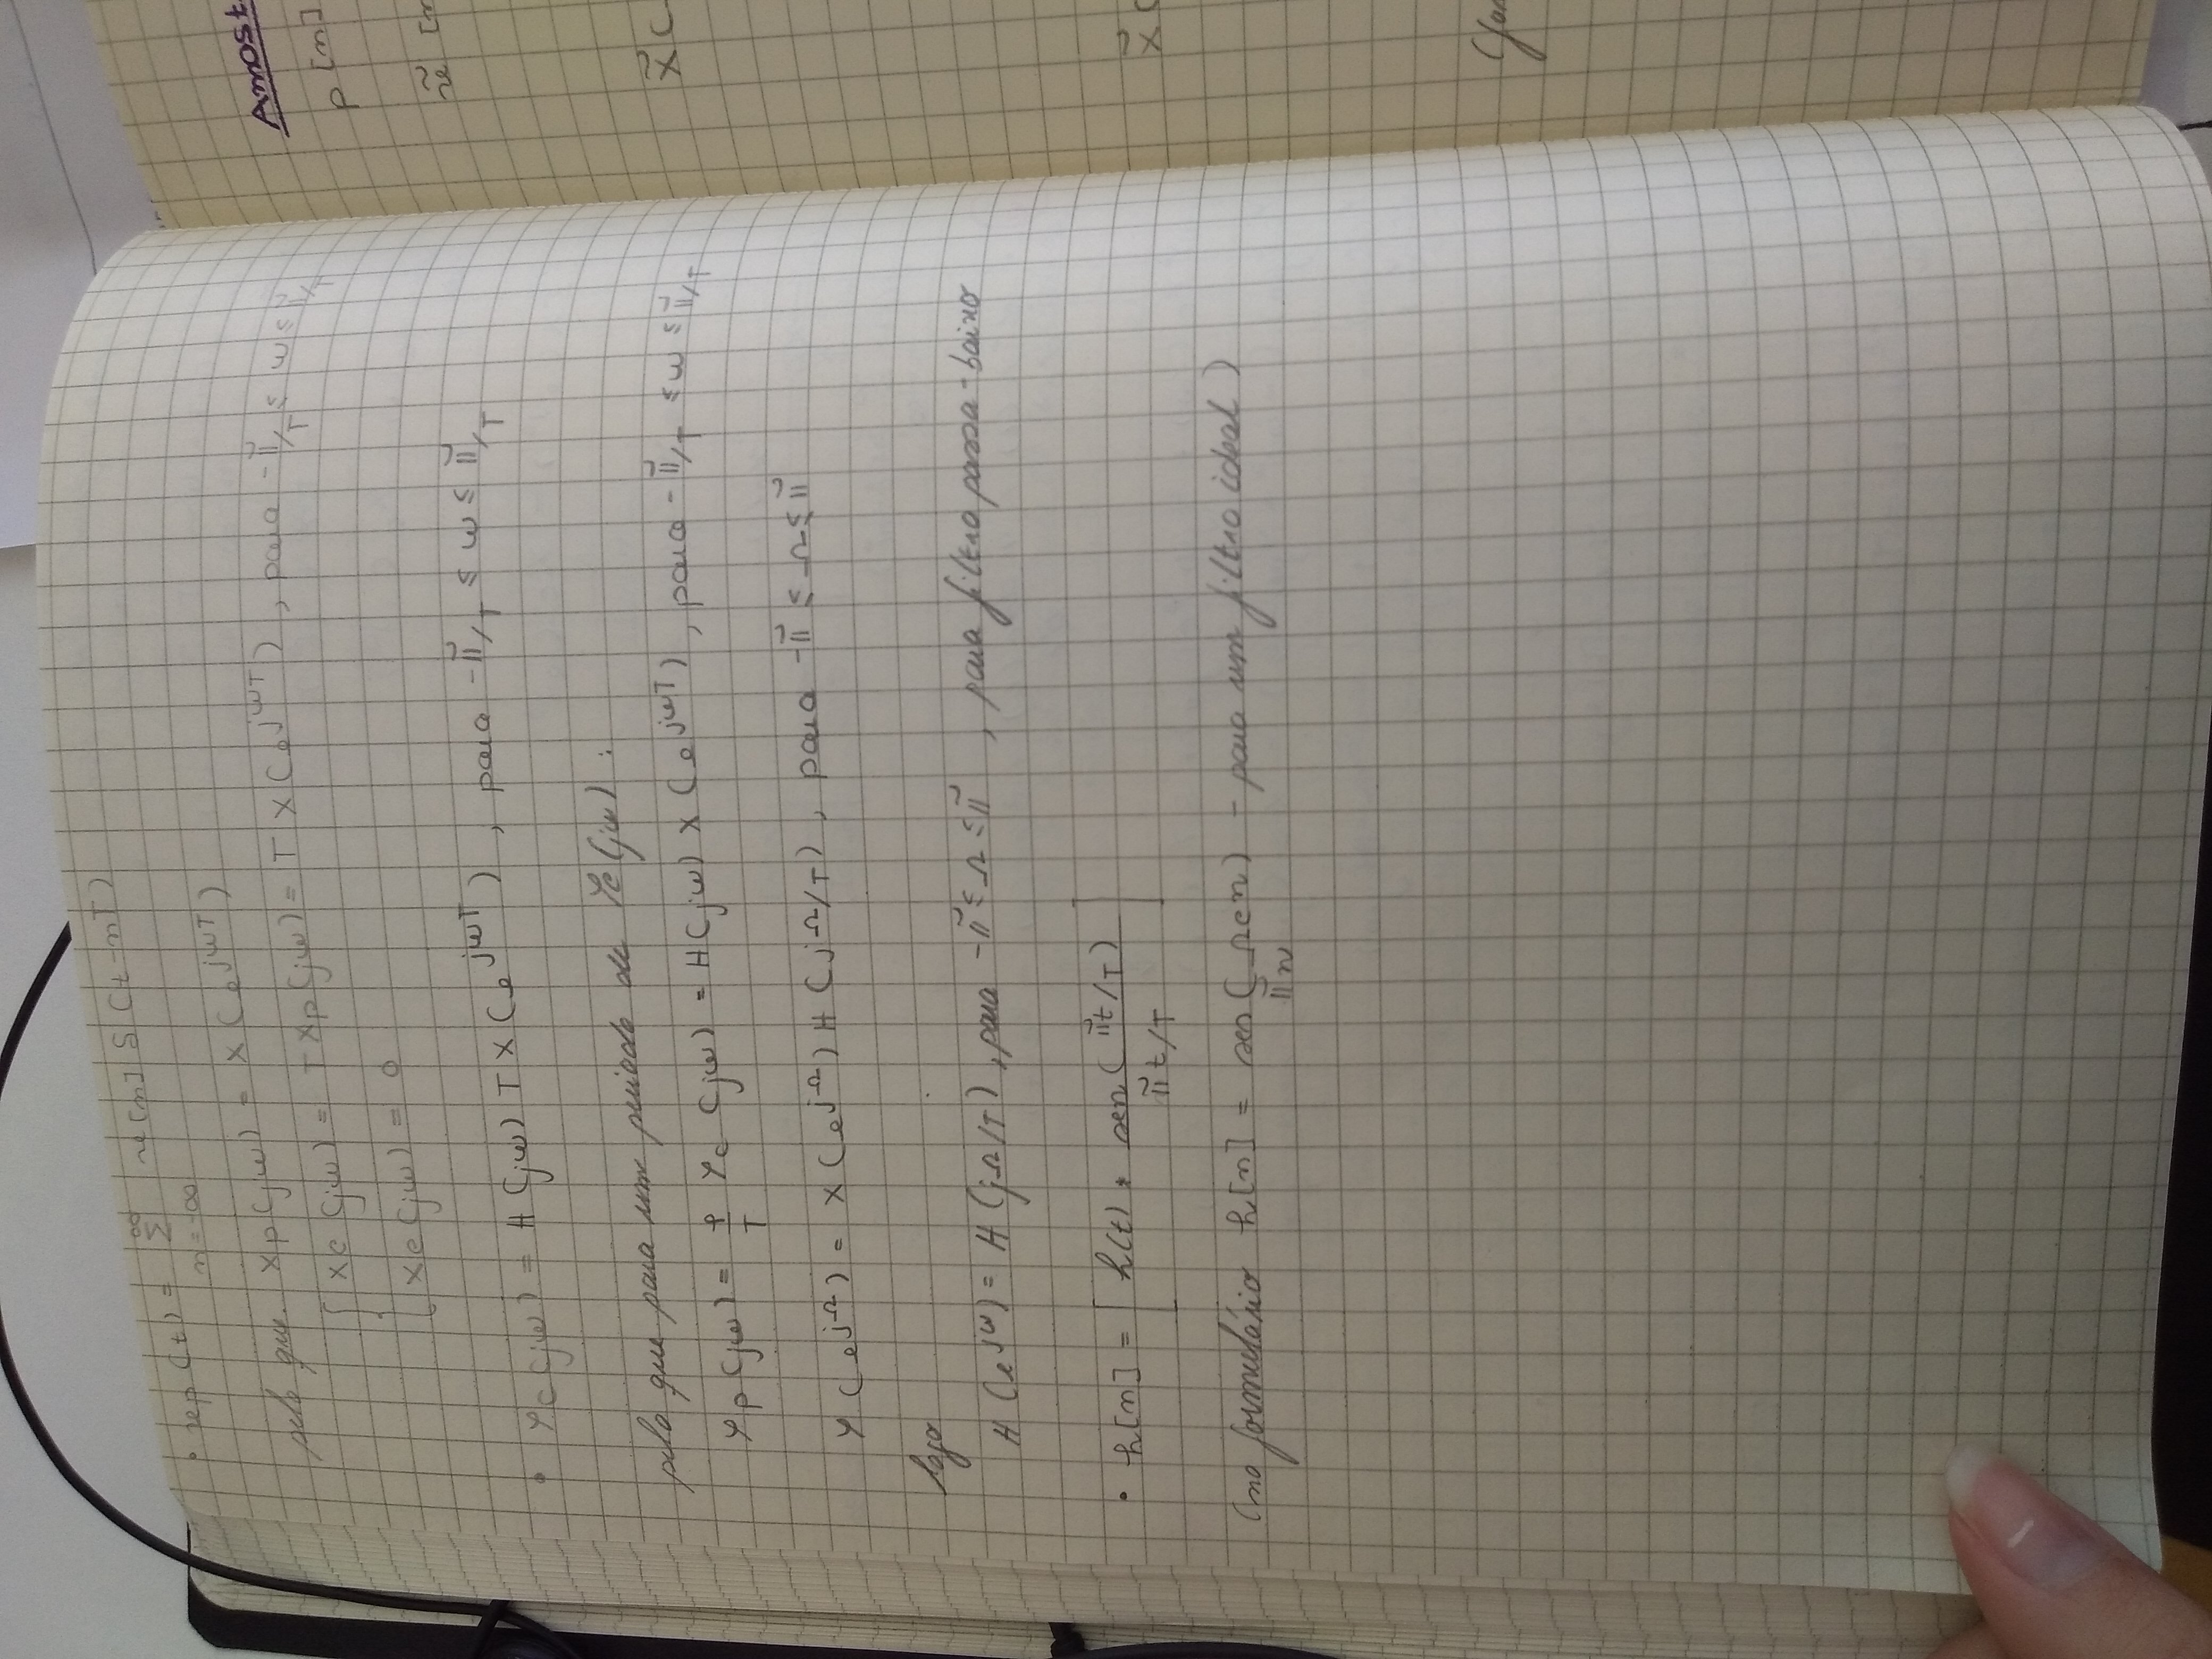 • xp(t) = Σ_{n=-∞}^{∞} x[n] δ(t-nT)
pelo que. Xp(jω) = X(e^{jωT})
{ Xc(jω) = T Xp(jω) = T X(e^{jωT}), para -π/T ≤ ω ≤ π/T
{ Xc(jω) = 0
• Yc(jω) = H(jω) T X(e^{jωT}), para -π/T ≤ ω ≤ π/T
pelo que para um período de Yc(jω):
Yp(jω) = 1/T Yc(jω) = H(jω) X(e^{jωT}), para -π/T ≤ ω ≤ π/T
Y(e^{jΩ}) = X(e^{jΩ}) H(jΩ/T), para -π ≤ Ω ≤ π
logo
H(e^{jω}) = H(jΩ/T), para -π ≤ Ω ≤ π, para filtro passa-baixo
• h[n] = [ h(t) * sen(πt/T)
πt/T ]
(no formulário h[n] = sen(Ωcn) - para um filtro ideal)
πn
Amost
p[n]
x̃[n
X̃(
X̃(